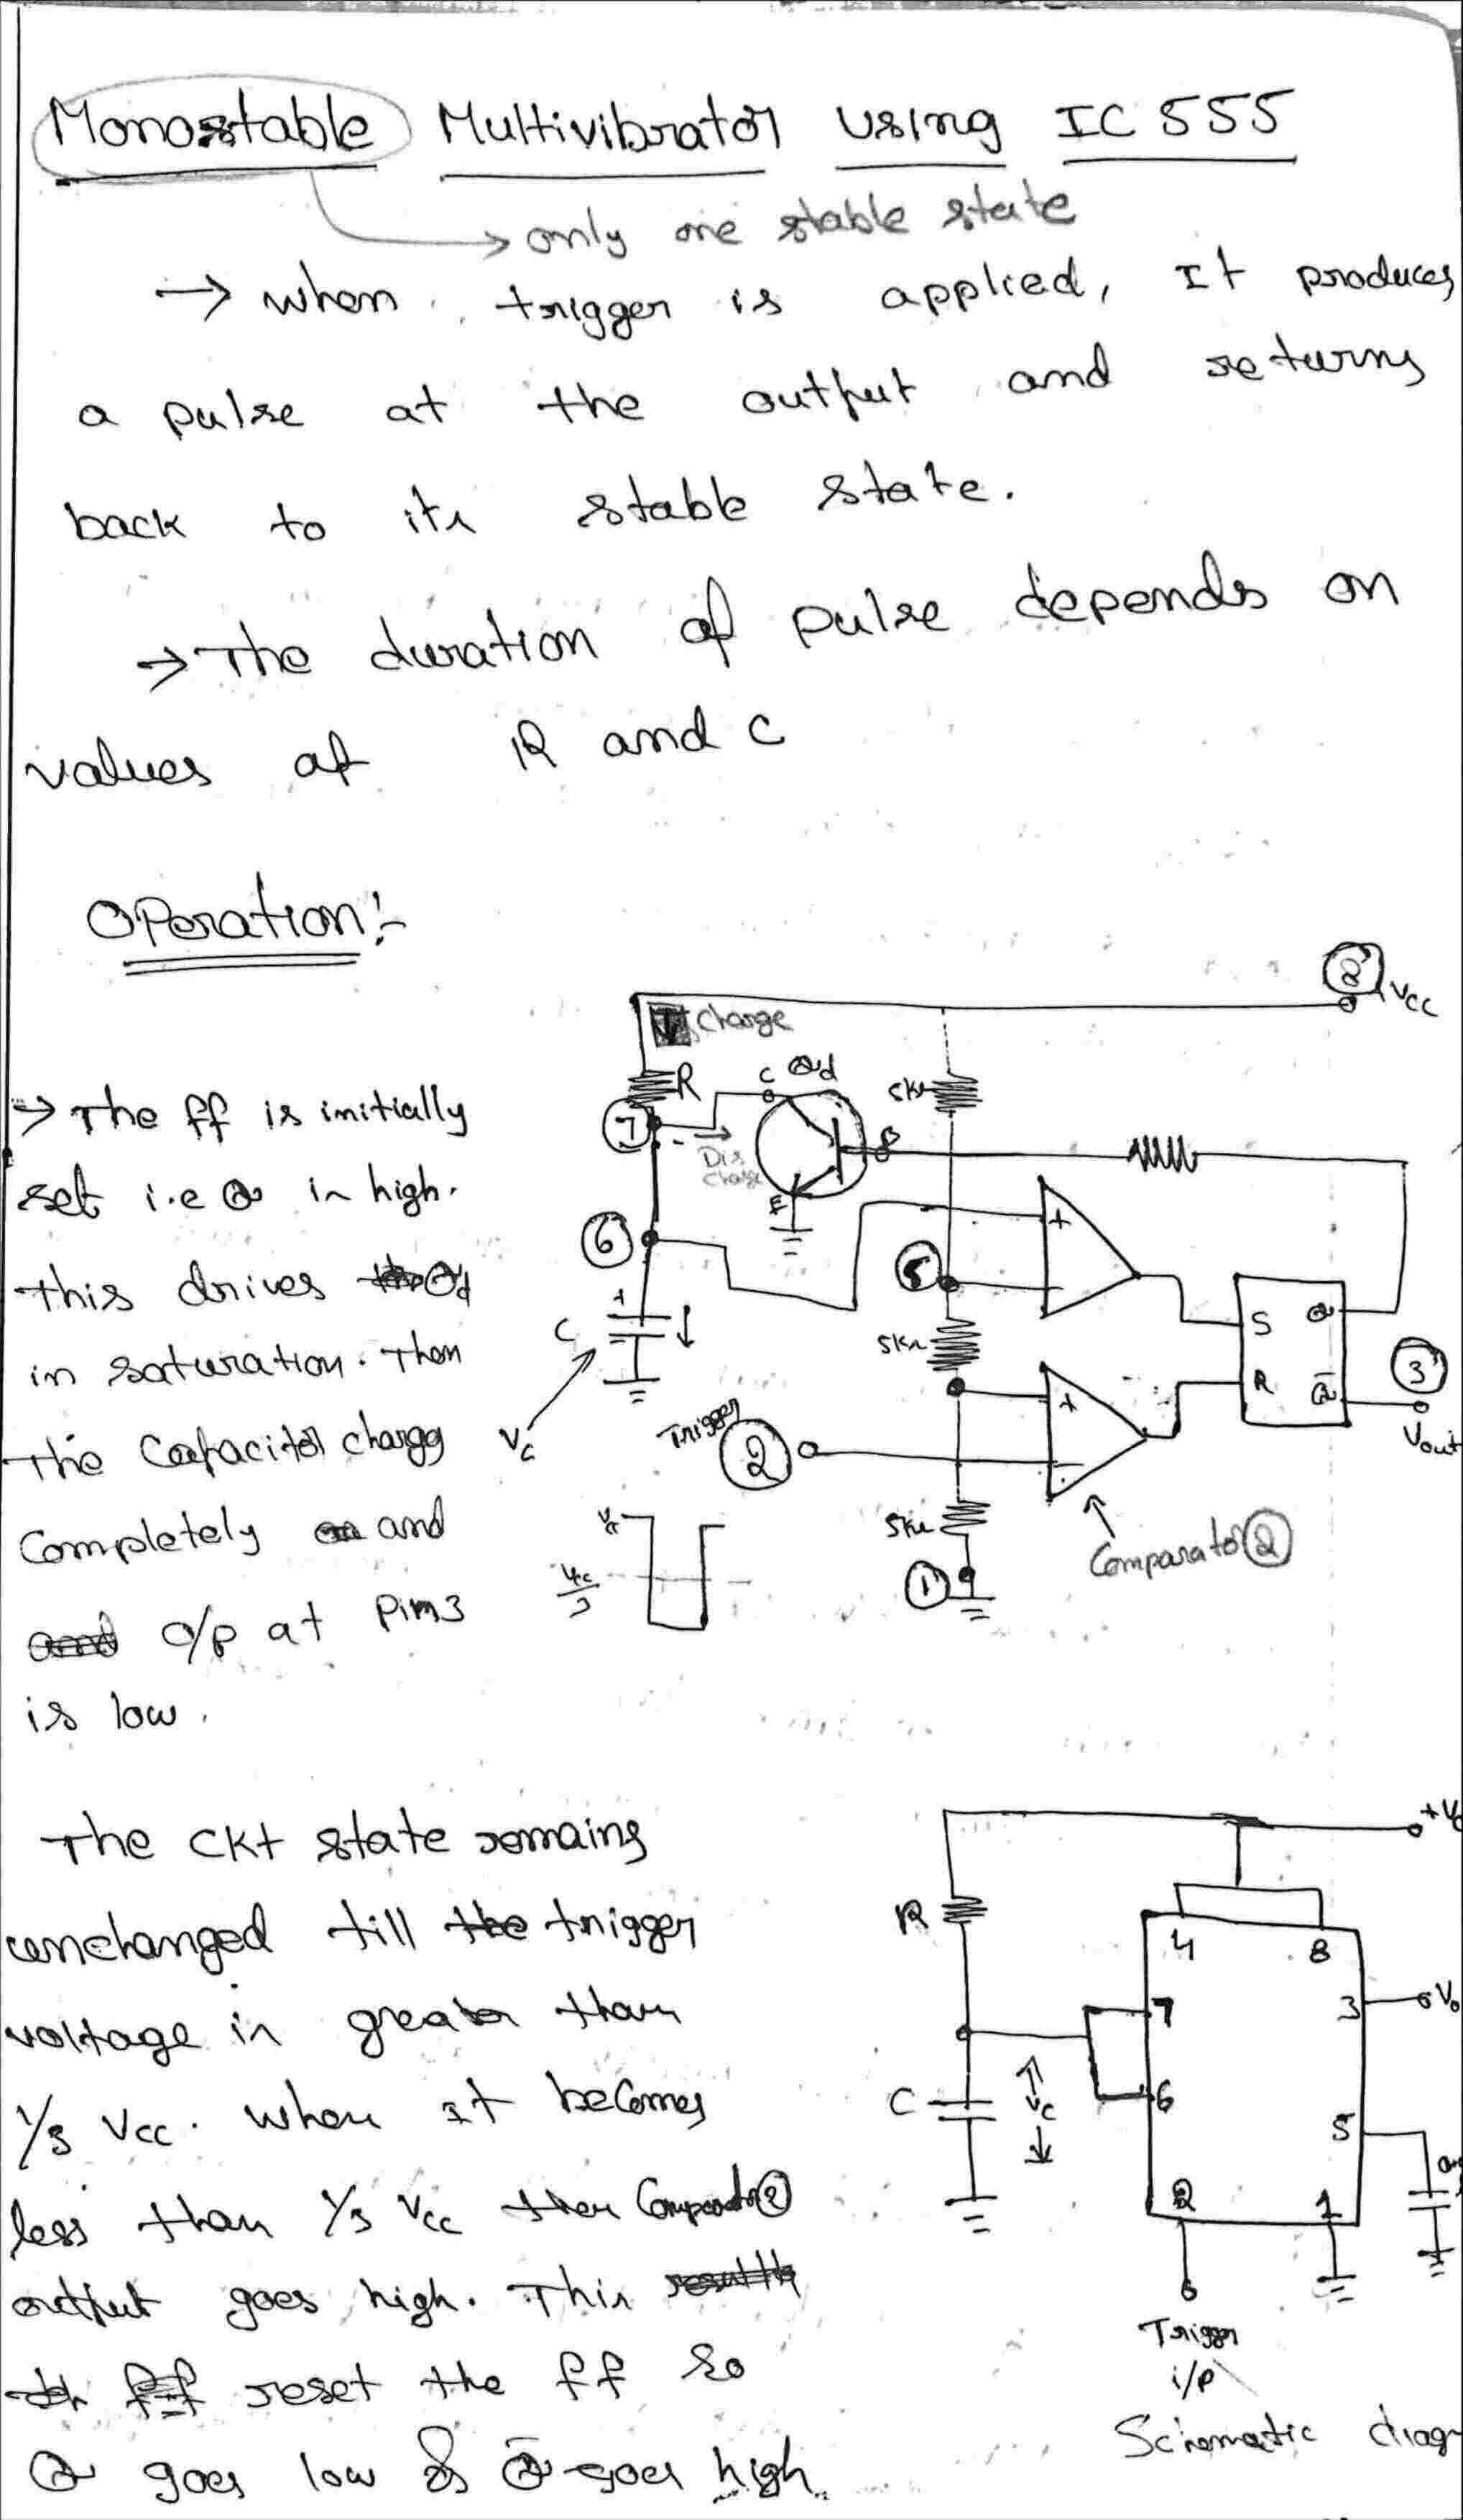 Monostable Multivibrator using IC 555
→ only one stable state
→ when trigger is applied, It produces
a pulse at the output and returns
back to its stable state.
→ The duration of pulse depends on
values of R and C
Operation:-
→ The ff is initially
set i.e Q is high.
this drives Qd
in saturation. Then
The Capacitor charges
Completely and
o/p at pin3
is low.
8 Vcc
Charge
R
C Qd
5kΩ
7
Dis
charge
B
E
6
5
+
-
C
+
5kΩ
S Q
R Q̄
3
Vout
Vc
Trigger
2
+
-
Vcc
Vcc/3
5kΩ
1
Comparator 2
The Ckt state remains
unchanged till trigger
voltage is greater than
1/3 Vcc. When it becomes
less than 1/3 Vcc then Comparator 2
output goes high. This
reset the ff so
Q goes low & Q̄ goes high.
R
4 8
7
3 Vo
C
Vc
6
5
2 1
Trigger
i/p
Schematic